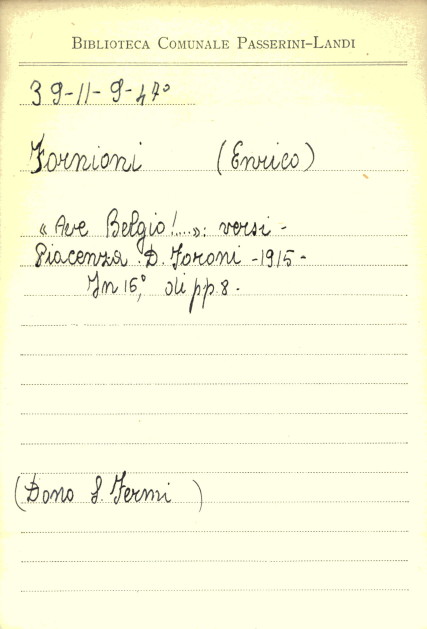 BIBLIOTECA COMUNALE PASSERINI-LANDI
39-11-9-47°
Fornioni (Enrico)
« Ave Belgio!...»: versi -
Piacenza. D. Foroni - 1915 -
In 16°, di pp. 8 -
(Dono S. Fermi )